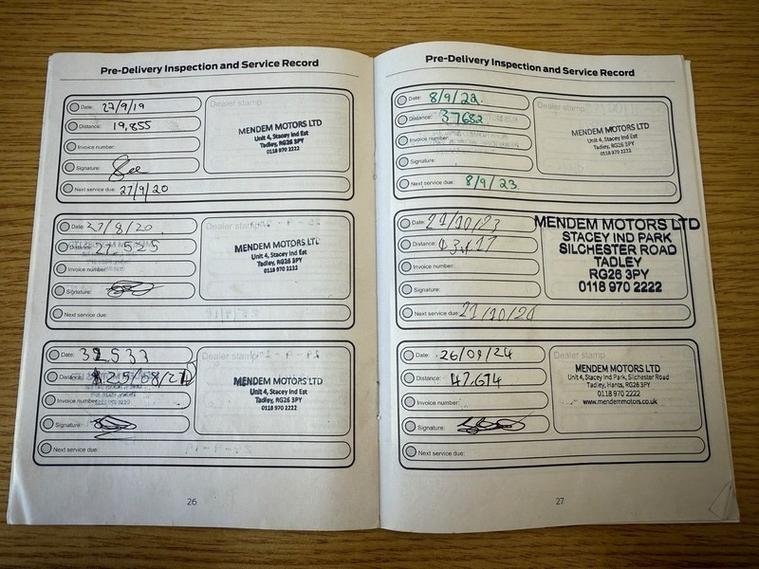 Pre-Delivery Inspection and Service Record
Date: 27/9/19
Distance: 19,855
Invoice number:
Signature:
Next service due: 27/9/20
Dealer stamp
MENDEM MOTORS LTD
Unit 4, Stacey Ind Est
Tadley, RG26 3PY
0118 970 2222
Date: 27/8/20
Distance:
Invoice number:
Signature:
Next service due:
Dealer stamp
MENDEM MOTORS LTD
Unit 4, Stacey Ind Est
Tadley, RG26 3PY
0118 970 2222
Date: 32533
Distance:
Invoice number:
Signature:
Next service due:
Dealer stamp
MENDEM MOTORS LTD
Unit 4, Stacey Ind Est
Tadley, RG26 3PY
0118 970 2222
26
Pre-Delivery Inspection and Service Record
Date: 8/9/22.
Distance: 37682
Invoice number:
Signature:
Next service due: 8/9/23.
Dealer stamp
MENDEM MOTORS LTD
Unit 4, Stacey Ind Est
Tadley, RG26 3PY
0118 970 2222
Date: 21/10/23
Distance:
Invoice number:
Signature:
Next service due:
MENDEM MOTORS LTD
STACEY IND PARK
SILCHESTER ROAD
TADLEY
RG26 3PY
0118 970 2222
Date: 26/09/24
Distance: 47,674
Invoice number:
Signature:
Next service due:
Dealer stamp
MENDEM MOTORS LTD
Unit 4, Stacey Ind Park, Silchester Road
Tadley, Hants, RG26 3PY
0118 970 2222
www.mendemmotors.co.uk
27